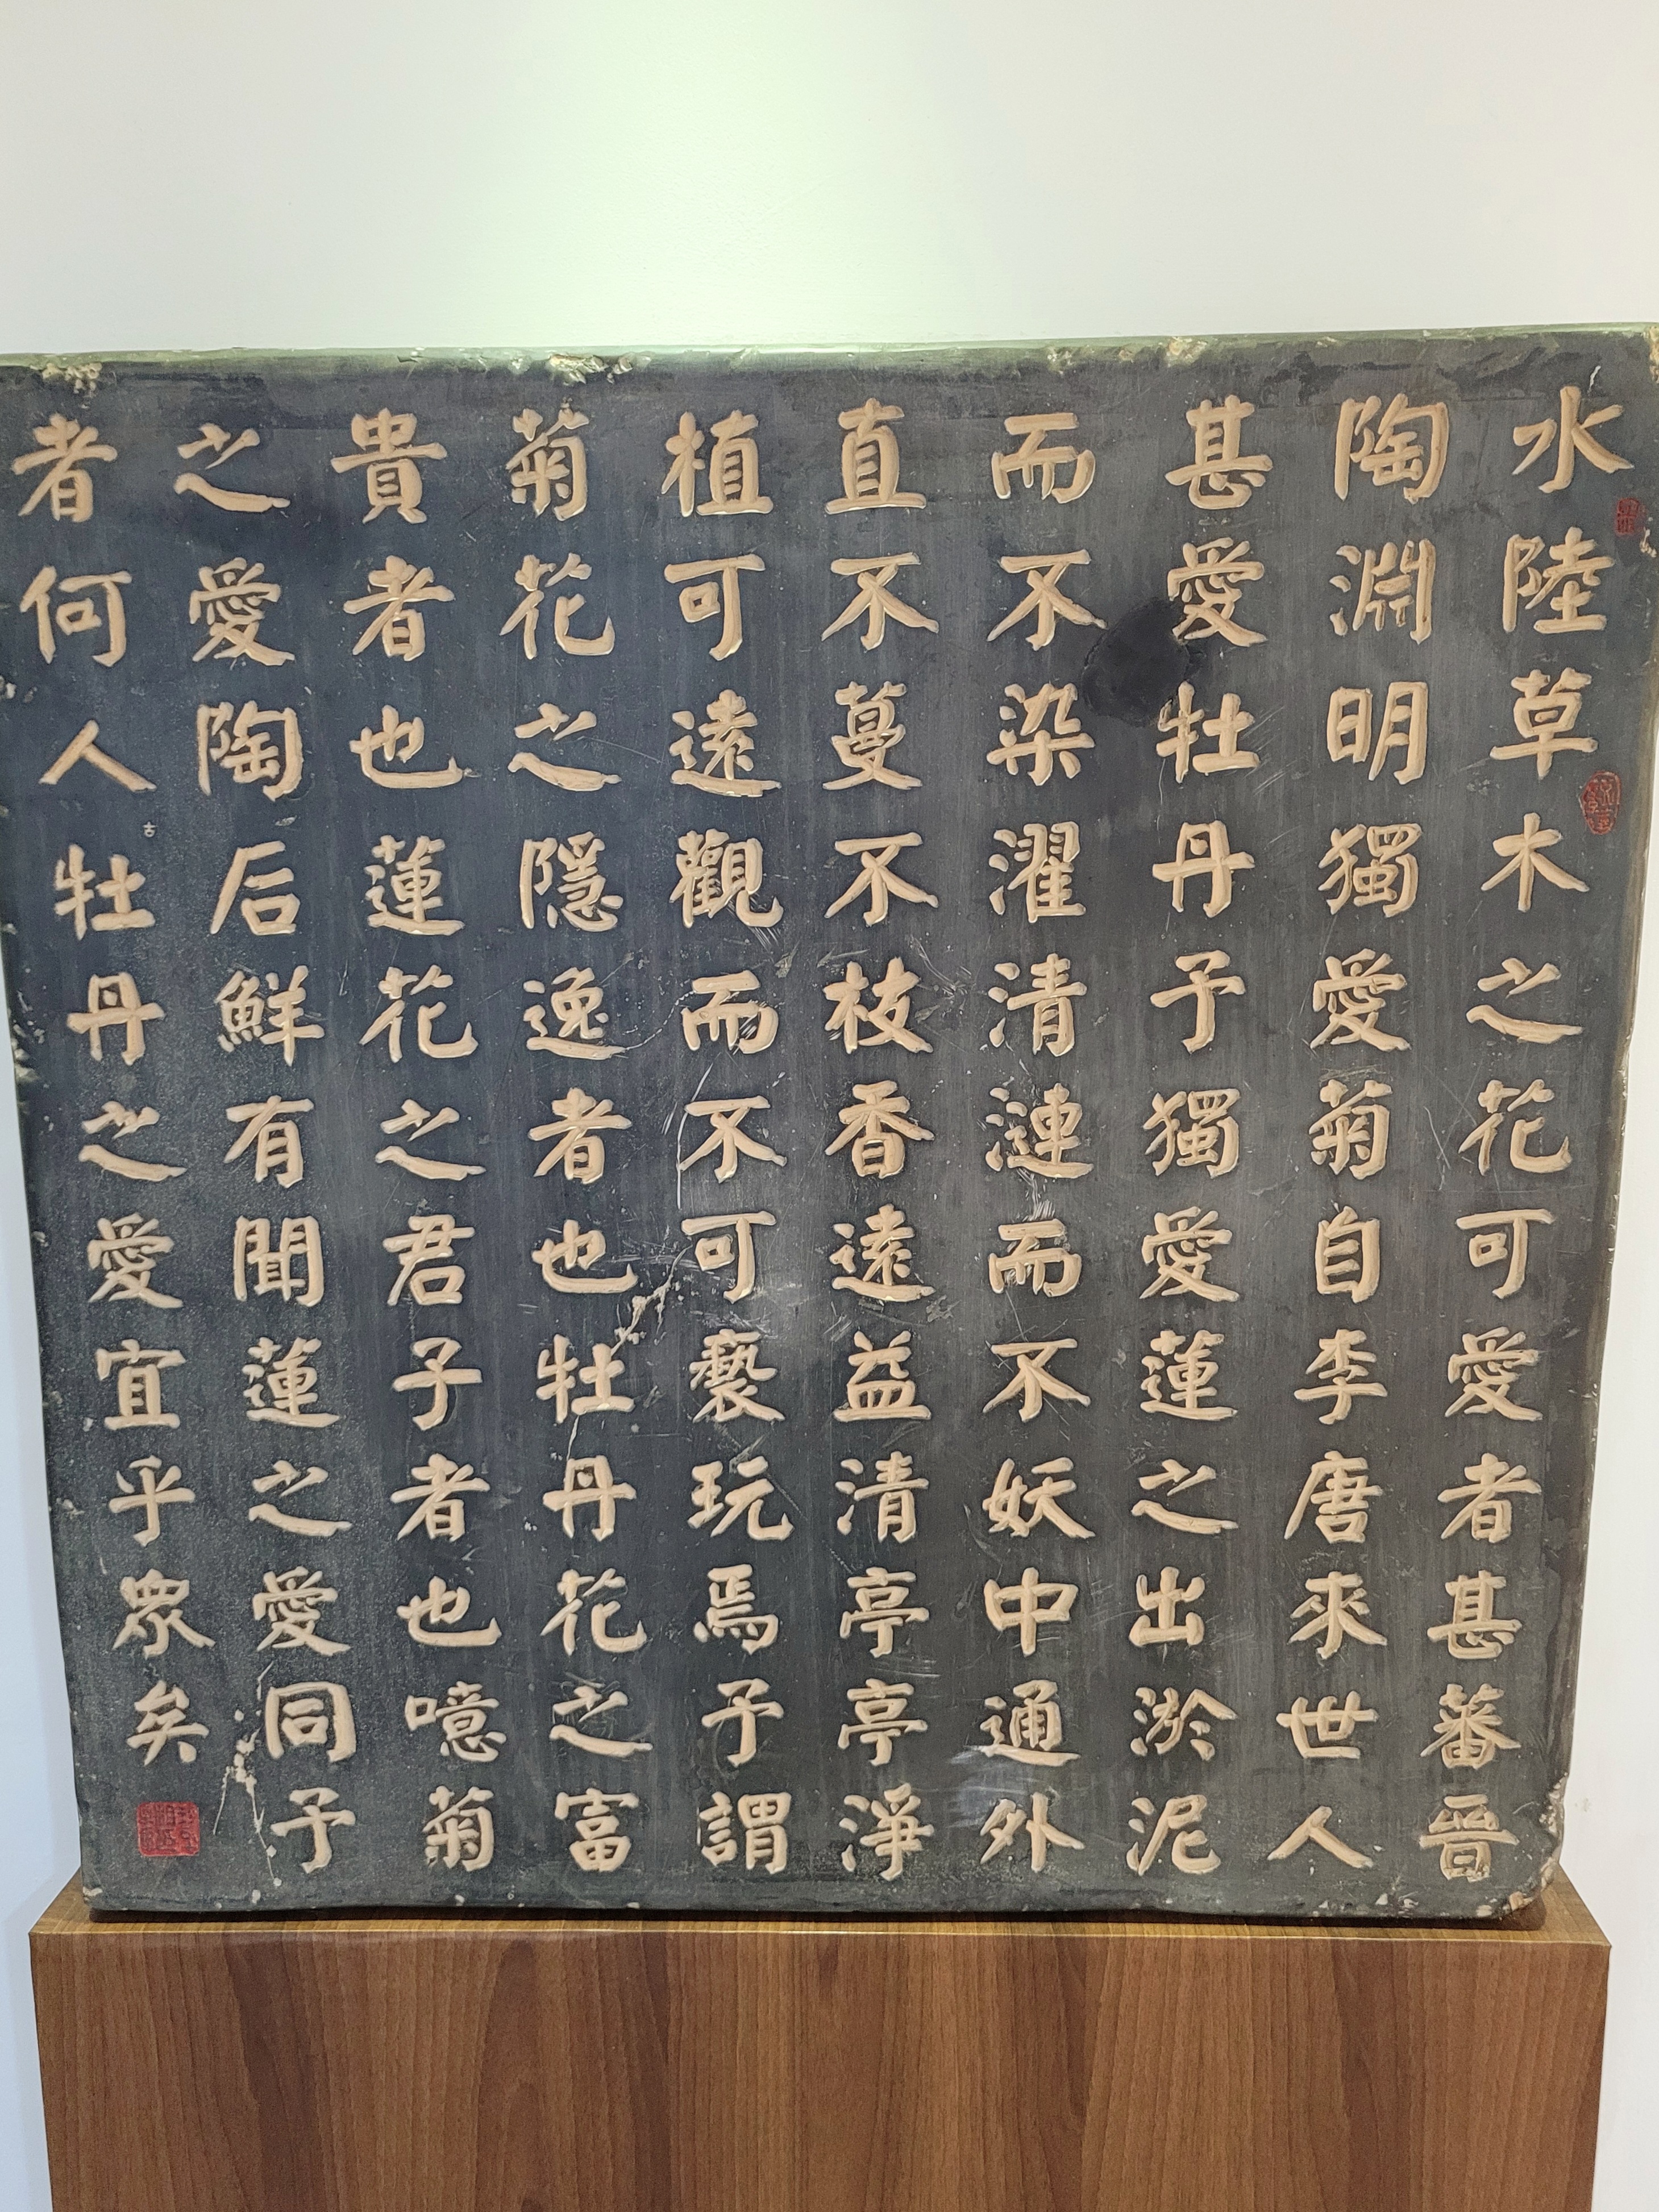 水陸草木之花可愛者甚蕃晉
陶淵明獨愛菊自李唐來世人
甚愛牡丹予獨愛蓮之出淤泥
而不染濯清漣而不妖中通外
直不蔓不枝香遠益清亭亭淨
植可遠觀而不可褻玩焉予謂
菊花之隱逸者也牡丹花之富
貴者也蓮花之君子者也噫菊
之愛陶后鮮有聞蓮之愛同予
者何人牡丹之愛宜乎眾矣
古